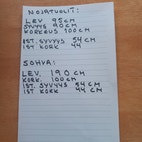 NOJATUOLIT:
LEV. 95CM
SYVYYS 90CM
KORKEUS 100CM
IST. SYVYYS 54CM
IST KORK 44
SOHVA:
LEV. 190CM
KORK. 100CM
IST. SYVYYS 54CM
IST KORK 44